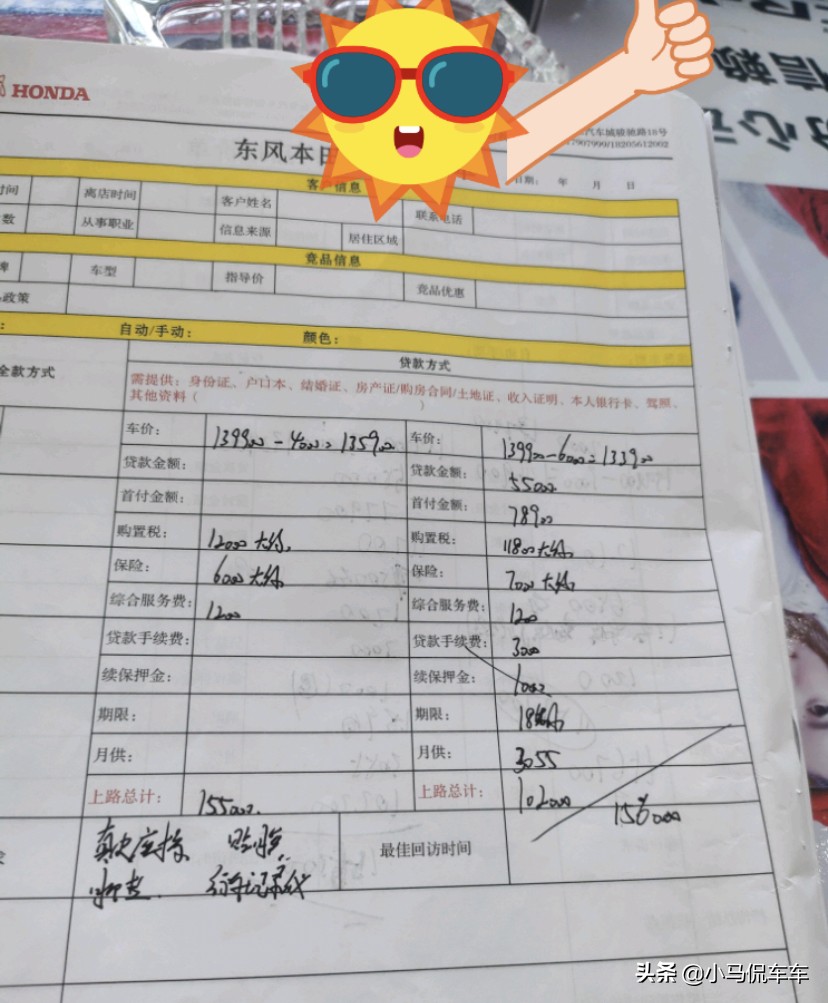 HONDA
汽车城骏驰路18号
7907990/18205612002
东风本田
日期: 年 月 日
客户信息
时间 离店时间 客户姓名 联系电话
数 从事职业 信息来源 居住区域
竞品信息
牌 车型 指导价 竞品优惠
政策
自动/手动: 颜色:
全款方式 贷款方式
需提供: 身份证、户口本、结婚证、房产证/购房合同/土地证、收入证明、本人银行卡、驾照、
其他资料 ( )
车价: 139900-4000=135900 车价: 139900-6000=133900
贷款金额: 贷款金额: 55000
首付金额: 首付金额: 78900
购置税: 12000大约 购置税: 11800大约
保险: 6000大约 保险: 7000大约
综合服务费: 1200 综合服务费: 1200
贷款手续费: 贷款手续费: 3000
续保押金: 续保押金: 1000
期限: 期限: 18
月供: 月供: 3055
上路总计: 155000 上路总计: 102000 156000
真皮座椅 贴膜 最佳回访时间
脚垫 行车记录仪
信赖
的心
头条 @小马侃车车